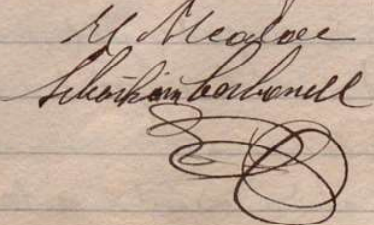 El Alcalde
Sebastian Carbonell